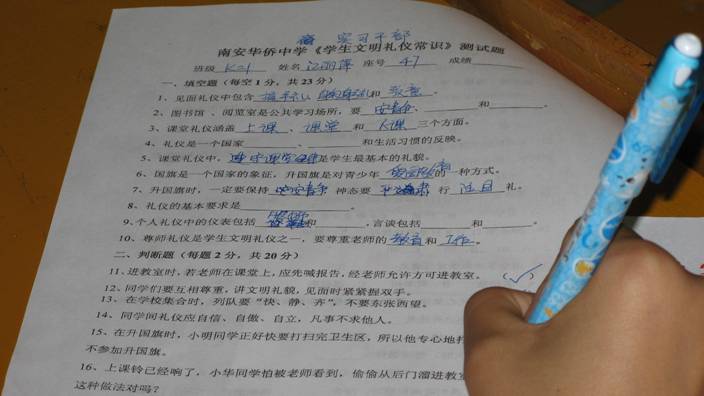 实习干部
南安华侨中学《学生文明礼仪常识》测试题
班级 K=1 姓名 江丽萍 座号 47 成绩
一、填空题（每空 1 分，共 23 分）
1、见面礼仪中包含 和 。
2、图书馆、阅览室是公共学习场所，要 安静 、 和 。
3、课堂礼仪涵盖 上课 、 课堂 和 下课 三个方面。
4、礼仪是一个国家 、 和生活习惯的反映。
5、课堂礼仪中， 遵守课堂纪律 是学生最基本的礼貌。
6、国旗是一个国家的象征，升国旗是对青少年 的一种方式。
7、升国旗时，一定要保持 安静 神态要 行 注目 礼。
8、礼仪的基本要求是 。
9、个人礼仪中的仪表包括 和 ，言谈包括 和 。
10、尊师礼仪是学生文明礼仪之一，要尊重老师的 教育 和 工作 。
二、判断题（每题 2 分，共 20 分）
11、进教室时，若老师在课堂上，应先喊报告，经老师允许方可进教室。 （√）
12、同学们要互相尊重，讲文明礼貌，见面时紧紧握双手。
13、在学校集合时，列队要“快、静、齐”。不要东张西望。
14、同学间礼仪应自信、自傲、自立，凡事不求他人。
15、在升国旗时，小明同学正好快要打扫完卫生区，所以他专心地打
不参加升国旗。
16、上课铃已经响了，小华同学怕被老师看到，偷偷从后门溜进教室
这种做法对吗？